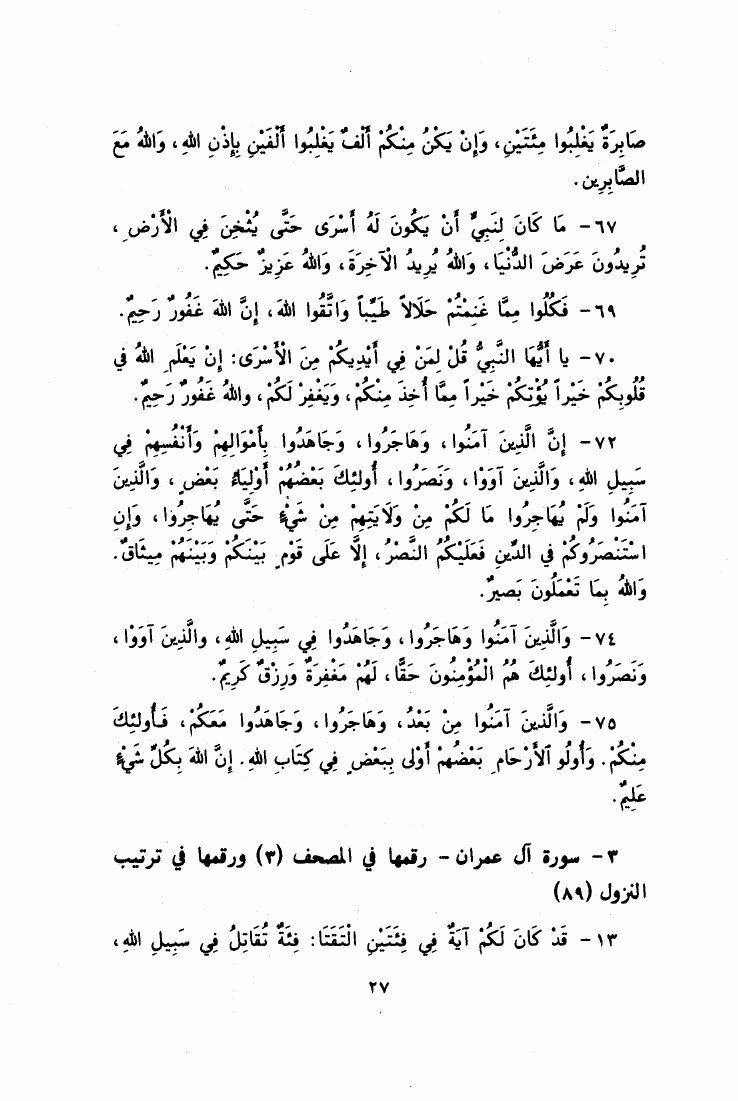 صَابِرَةٌ يَغْلِبُوا مِئَتَيْنِ، وَإِنْ يَكُنْ مِنْكُمْ أَلْفٌ يَغْلِبُوا أَلْفَيْنِ بِإِذْنِ اللهِ، وَاللهُ مَعَ
الصَّابِرِين.
٦٧ - مَا كَانَ لِنَبِيٍّ أَنْ يَكُونَ لَهُ أَسْرَى حَتَّى يُثْخِنَ فِي الْأَرْضِ،
تُرِيدُونَ عَرَضَ الدُّنْيَا، وَاللهُ يُرِيدُ الْآخِرَةَ، وَاللهُ عَزِيزٌ حَكِيمٌ.
٦٩ - فَكُلُوا مِمَّا غَنِمْتُمْ حَلَالاً طَيِّباً وَاتَّقُوا اللهَ، إِنَّ اللهَ غَفُورٌ رَحِيمٌ.
٧٠ - يا أَيُّهَا النَّبِيُّ قُلْ لِمَنْ فِي أَيْدِيكُمْ مِنَ الْأَسْرَى: إِنْ يَعْلَمِ اللهُ في
قُلُوبِكُمْ خَيْراً يُؤْتِكُمْ خَيْراً مِمَّا أُخِذَ مِنْكُمْ، وَيَغْفِرْ لَكُمْ، واللهُ غَفُورٌ رَحِيمٌ.
٧٢ - إِنَّ الَّذِينَ آمَنُوا، وَهَاجَرُوا، وَجَاهَدُوا بِأَمْوَالِهِمْ وَأَنْفُسِهِمْ فِي
سَبِيلِ اللهِ، وَالَّذِينَ آوَوْا، وَنَصَرُوا، أُولئِكَ بَعْضُهُمْ أَوْلِيَاءُ بَعْضٍ، وَالَّذِينَ
آمَنُوا وَلَمْ يُهَاجِرُوا مَا لَكُمْ مِنْ وَلَايَتِهِمْ مِنْ شَيْءٍ حَتَّى يُهَاجِرُوا، وَإِنِ
اسْتَنْصَرُوكُمْ في الدِّينِ فَعَلَيْكُمُ النَّصْرُ، إِلَّا عَلَى قَوْمٍ بَيْنَكُمْ وَبَيْنَهُمْ مِيثَاقٌ.
وَاللهُ بِمَا تَعْمَلُونَ بَصيرٌ.
٧٤ - وَالَّذِينَ آمَنُوا وَهَاجَرُوا، وَجَاهَدُوا فِي سَبِيلِ اللهِ، والَّذِينَ آوَوْا،
وَنَصَرُوا، أُولئِكَ هُمُ الْمُؤْمِنُونَ حَقًّا، لَهُمْ مَغْفِرَةٌ وَرِزْقٌ كَرِيمٌ.
٧٥ - وَالَّذينَ آمَنُوا مِنْ بَعْدُ، وَهَاجَرُوا، وَجَاهَدُوا مَعَكُمْ، فَأُولئِكَ
مِنْكُمْ. وَأُولُو ٱلأَرْحَامِ بَعْضُهُمْ أَوْلى بِبَعْضٍ فِي كِتَابِ اللهِ. إِنَّ اللهَ بِكُلِّ شَيْءٍ
عَلِيمٌ.
٣ - سورة آل عمران - رقمها في المصحف (٣) ورقمها في ترتيب
النزول (٨٩)
١٣ - قَدْ كَانَ لَكُمْ آيَةٌ فِي فِئَتَيْنِ الْتَقَتَا: فِئَةٌ تُقَاتِلُ فِي سَبِيلِ اللهِ،
٢٧